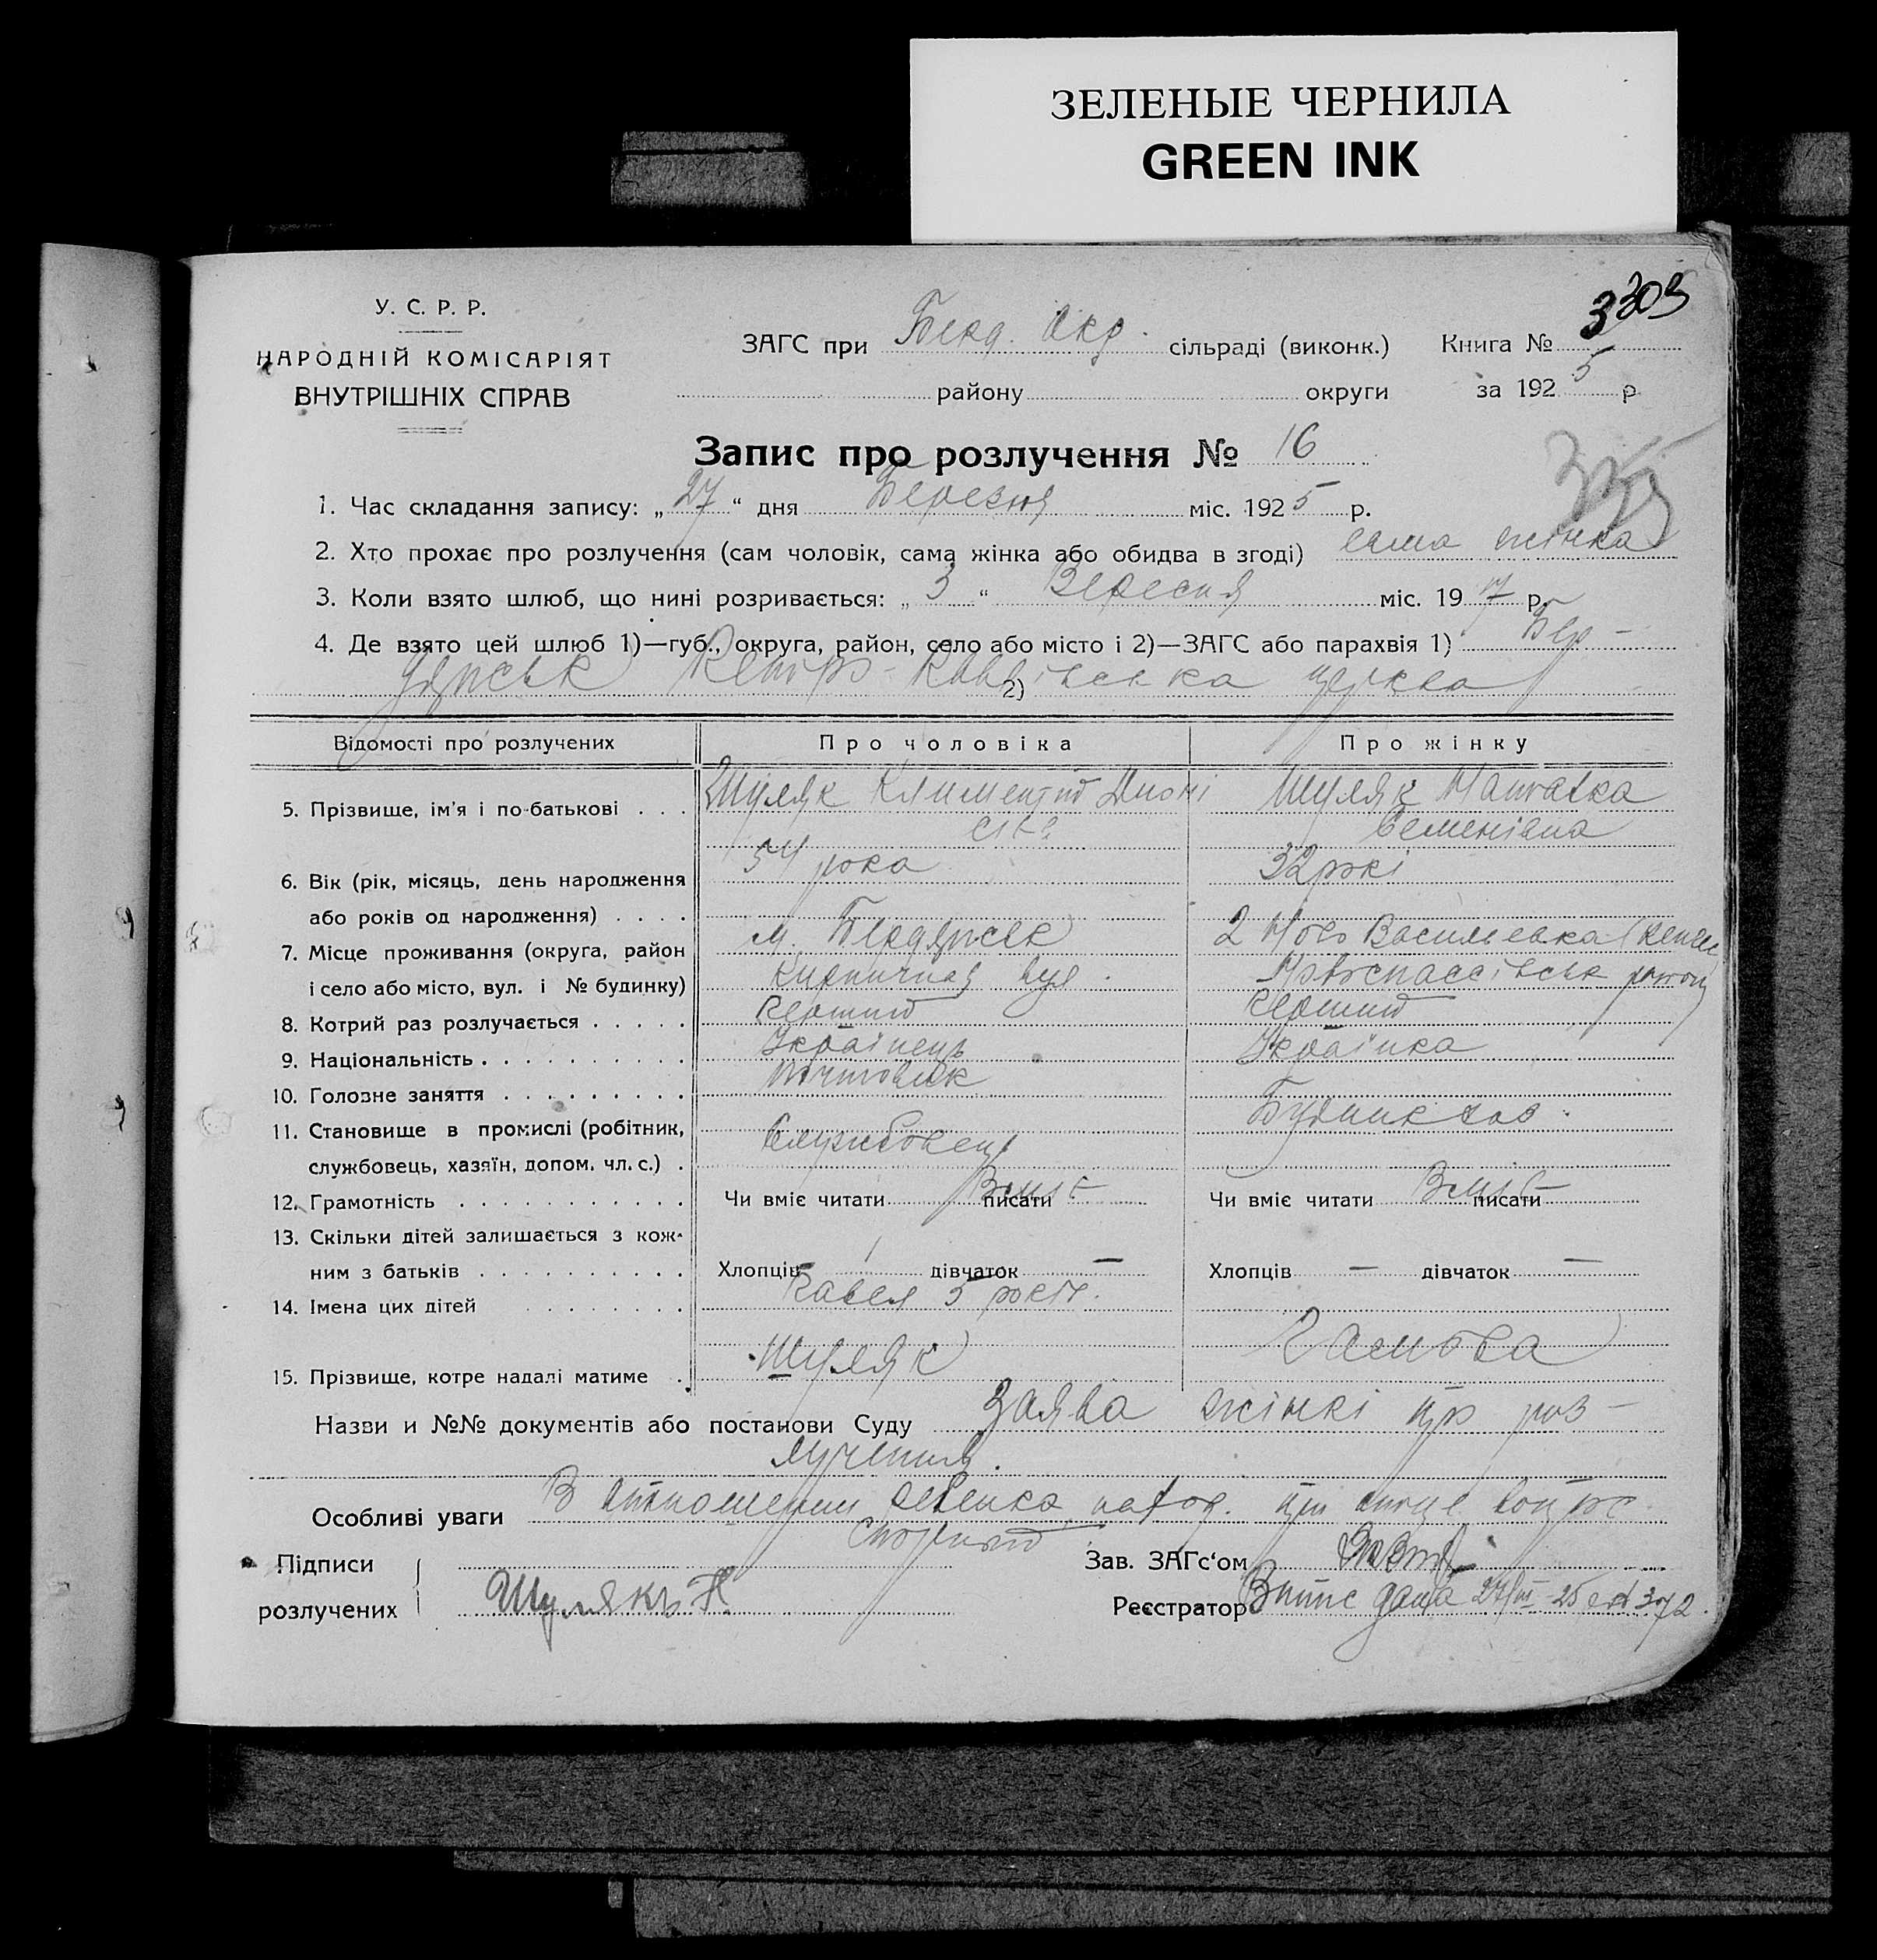 ЗЕЛЕНЫЕ ЧЕРНИЛА
GREEN INK
У. С. Р. Р.
НАРОДНІЙ КОМІСАРІЯТ
ВНУТРІШНІХ СПРАВ
ЗАГС при Берд. Окр. сільраді (виконк.) Книга №
району округи за 1925 р.
Запис про розлучення № 16
1. Час складання запису: „27“ дня Березня міс. 1925 р.
2. Хто прохає про розлучення (сам чоловік, сама жінка або обидва в згоді) сама жінка
3. Коли взято шлюб, що нині розривається: „3“ Вересня міс. 1917 р.
4. Де взято цей шлюб 1)—губ., округа, район, село або місто і 2)—ЗАГС або парахвія 1) Бер-
дянськ 2) Петро-Павлівська церква
Відомості про розлучених Про чоловіка Про жінку
5. Прізвище, ім'я і по-батькові . . . Шуляк Климентий Діоні Шуляк
Семенівна
6. Вік (рік, місяць, день народження 54 рока 32 рокі
або років од народження) . . . .
7. Місце проживання (округа, район м. Бердянськ Ново Васильевка
і село або місто, вул. і № будинку) Кирпичная вул. Новоспассівськ району
8. Котрий раз розлучається . . . . . Перший Перший
9. Національність . . . . . . . . . . Українець Українка
10. Головне заняття . . . . . . . . . Почтовик
11. Становище в промислі (робітник, Службовець
службовець, хазяїн, допом. чл. с.) .
12. Грамотність . . . . . . . . . . . Чи вміє читати Вміє писати Чи вміє читати Вміє писати
13. Скільки дітей залишається з кож-
ним з батьків . . . . . . . . . . Хлопців 1 дівчаток — Хлопців — дівчаток —
14. Імена цих дітей . . . . . . . . Павел 5 років.
15. Прізвище, котре надалі матиме . Шуляк
Назви и №№ документів або постанови Суду Заява жінкі про роз-
лучення.
Особливі уваги В отношении ребенка наход. при отце вопрос
спорный
Підписи
розлучених Шулякъ К. Зав. ЗАГс'ом
Реєстратор 27/III-25 372.